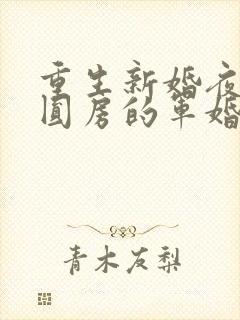 重生新婚夜
圆房的军婚
青木友梨